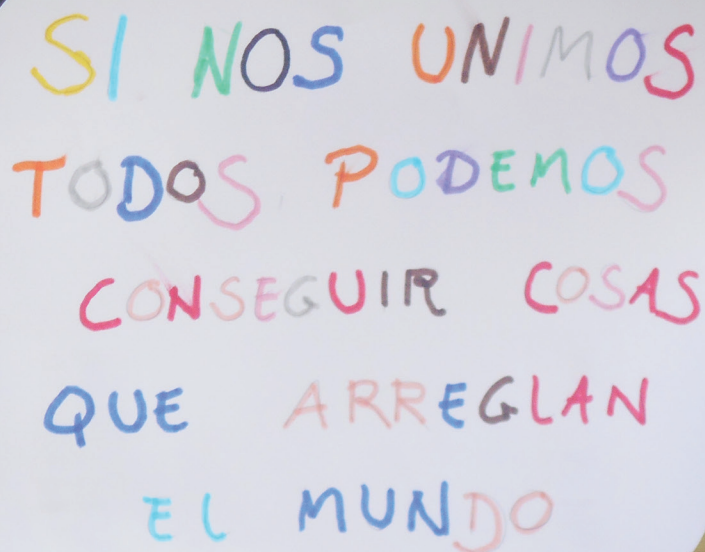 SI NOS UNIMOS
TODOS PODEMOS
CONSEGUIR COSAS
QUE ARREGLAN
EL MUNDO